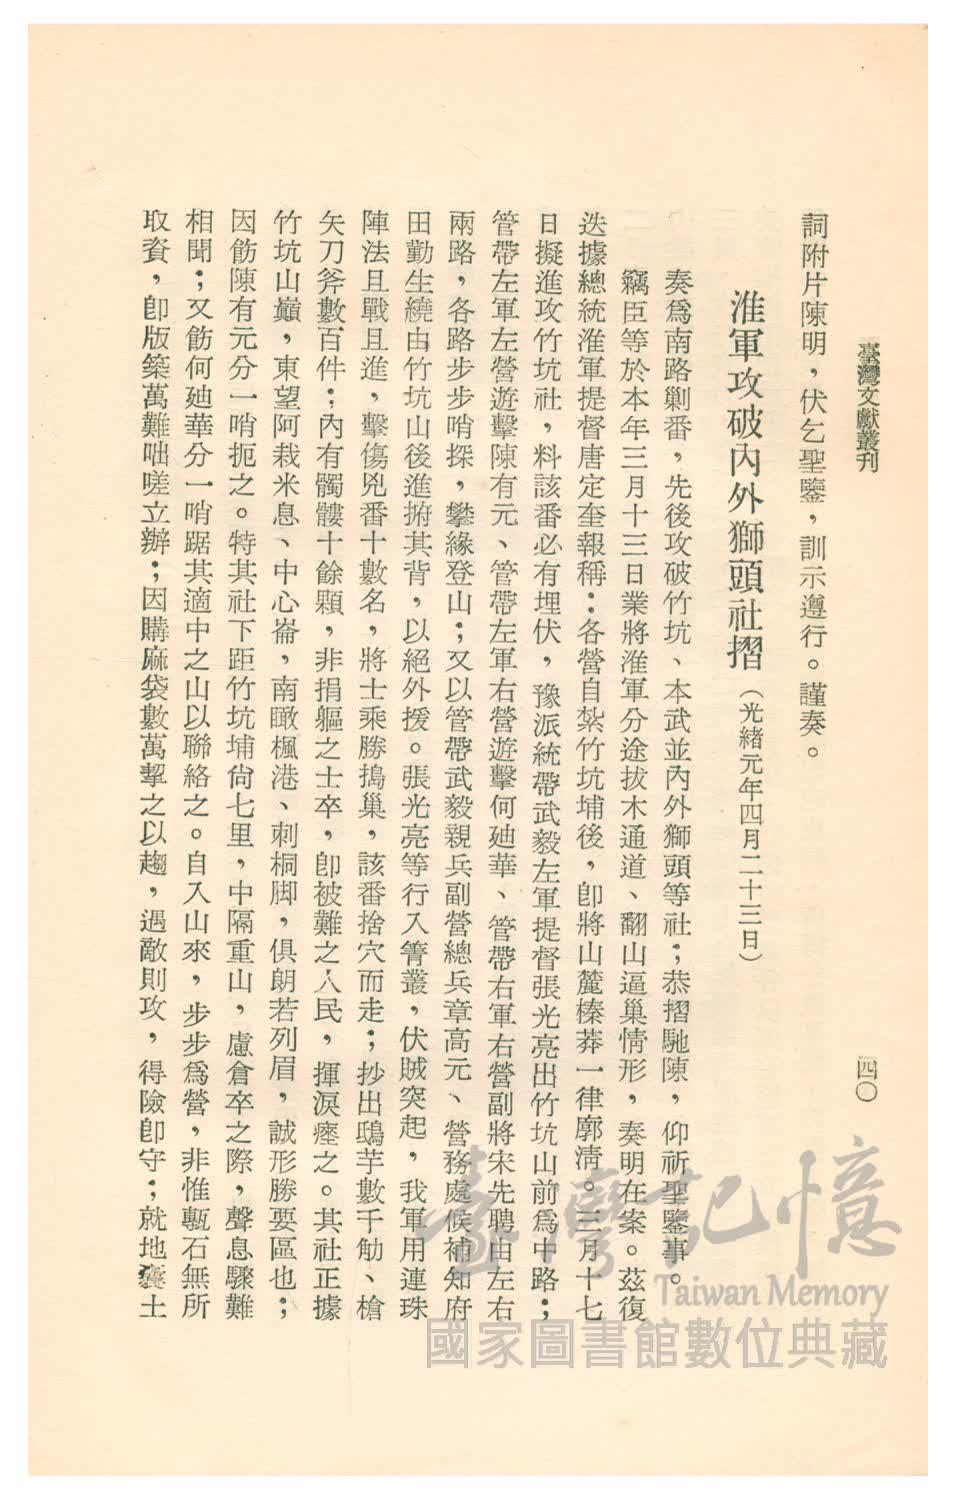 臺灣文獻叢刊
四〇
詞附片陳明，伏乞聖鑒，訓示遵行。謹奏。
淮軍攻破內外獅頭社摺（光緒元年四月二十三日）
奏爲南路剿番，先後攻破竹坑、本武並內外獅頭等社；恭摺馳陳，仰祈聖鑒事。
竊臣等於本年三月十三日業將淮軍分途拔木通道、翻山逼巢情形，奏明在案。茲復
迭據總統淮軍提督唐定奎報稱：各營自紮竹坑埔後，卽將山麓榛莽一律廓淸。三月十七
日擬進攻竹坑社，料該番必有埋伏，豫派統帶武毅左軍提督張光亮出竹坑山前爲中路；
管帶左軍左營遊擊陳有元、管帶左軍右營遊擊何廸華、管帶右軍右營副將宋先聘由左右
兩路，各路步步哨探，攀緣登山；又以管帶武毅親兵副營總兵章高元、營務處候補知府
田勤生繞由竹坑山後進拊其背，以絕外援。張光亮等行入箐叢，伏賊突起，我軍用連珠
陣法且戰且進，擊傷兇番十數名，將士乘勝搗巢，該番捨穴而走；抄出鴟芋數千觔、槍
矢刀斧數百件；內有髑髏十餘顆，非捐軀之士卒，卽被難之人民，揮淚瘞之。其社正據
竹坑山巔，東望阿栽米息、中心崙，南瞰楓港、刺桐脚，俱朗若列眉，誠形勝要區也；
因飭陳有元分一哨扼之。特其社下距竹坑埔尙七里，中隔重山，慮倉卒之際，聲息驟難
相聞；又飭何廸華分一哨踞其適中之山以聯絡之。自入山來，步步爲營，非惟甎石無所
取資，卽版築萬難咄嗟立辦；因購麻袋數萬挈之以趨，遇敵則攻，得險卽守；就地囊土
臺灣記憶
Taiwan Memory
國家圖書館數位典藏